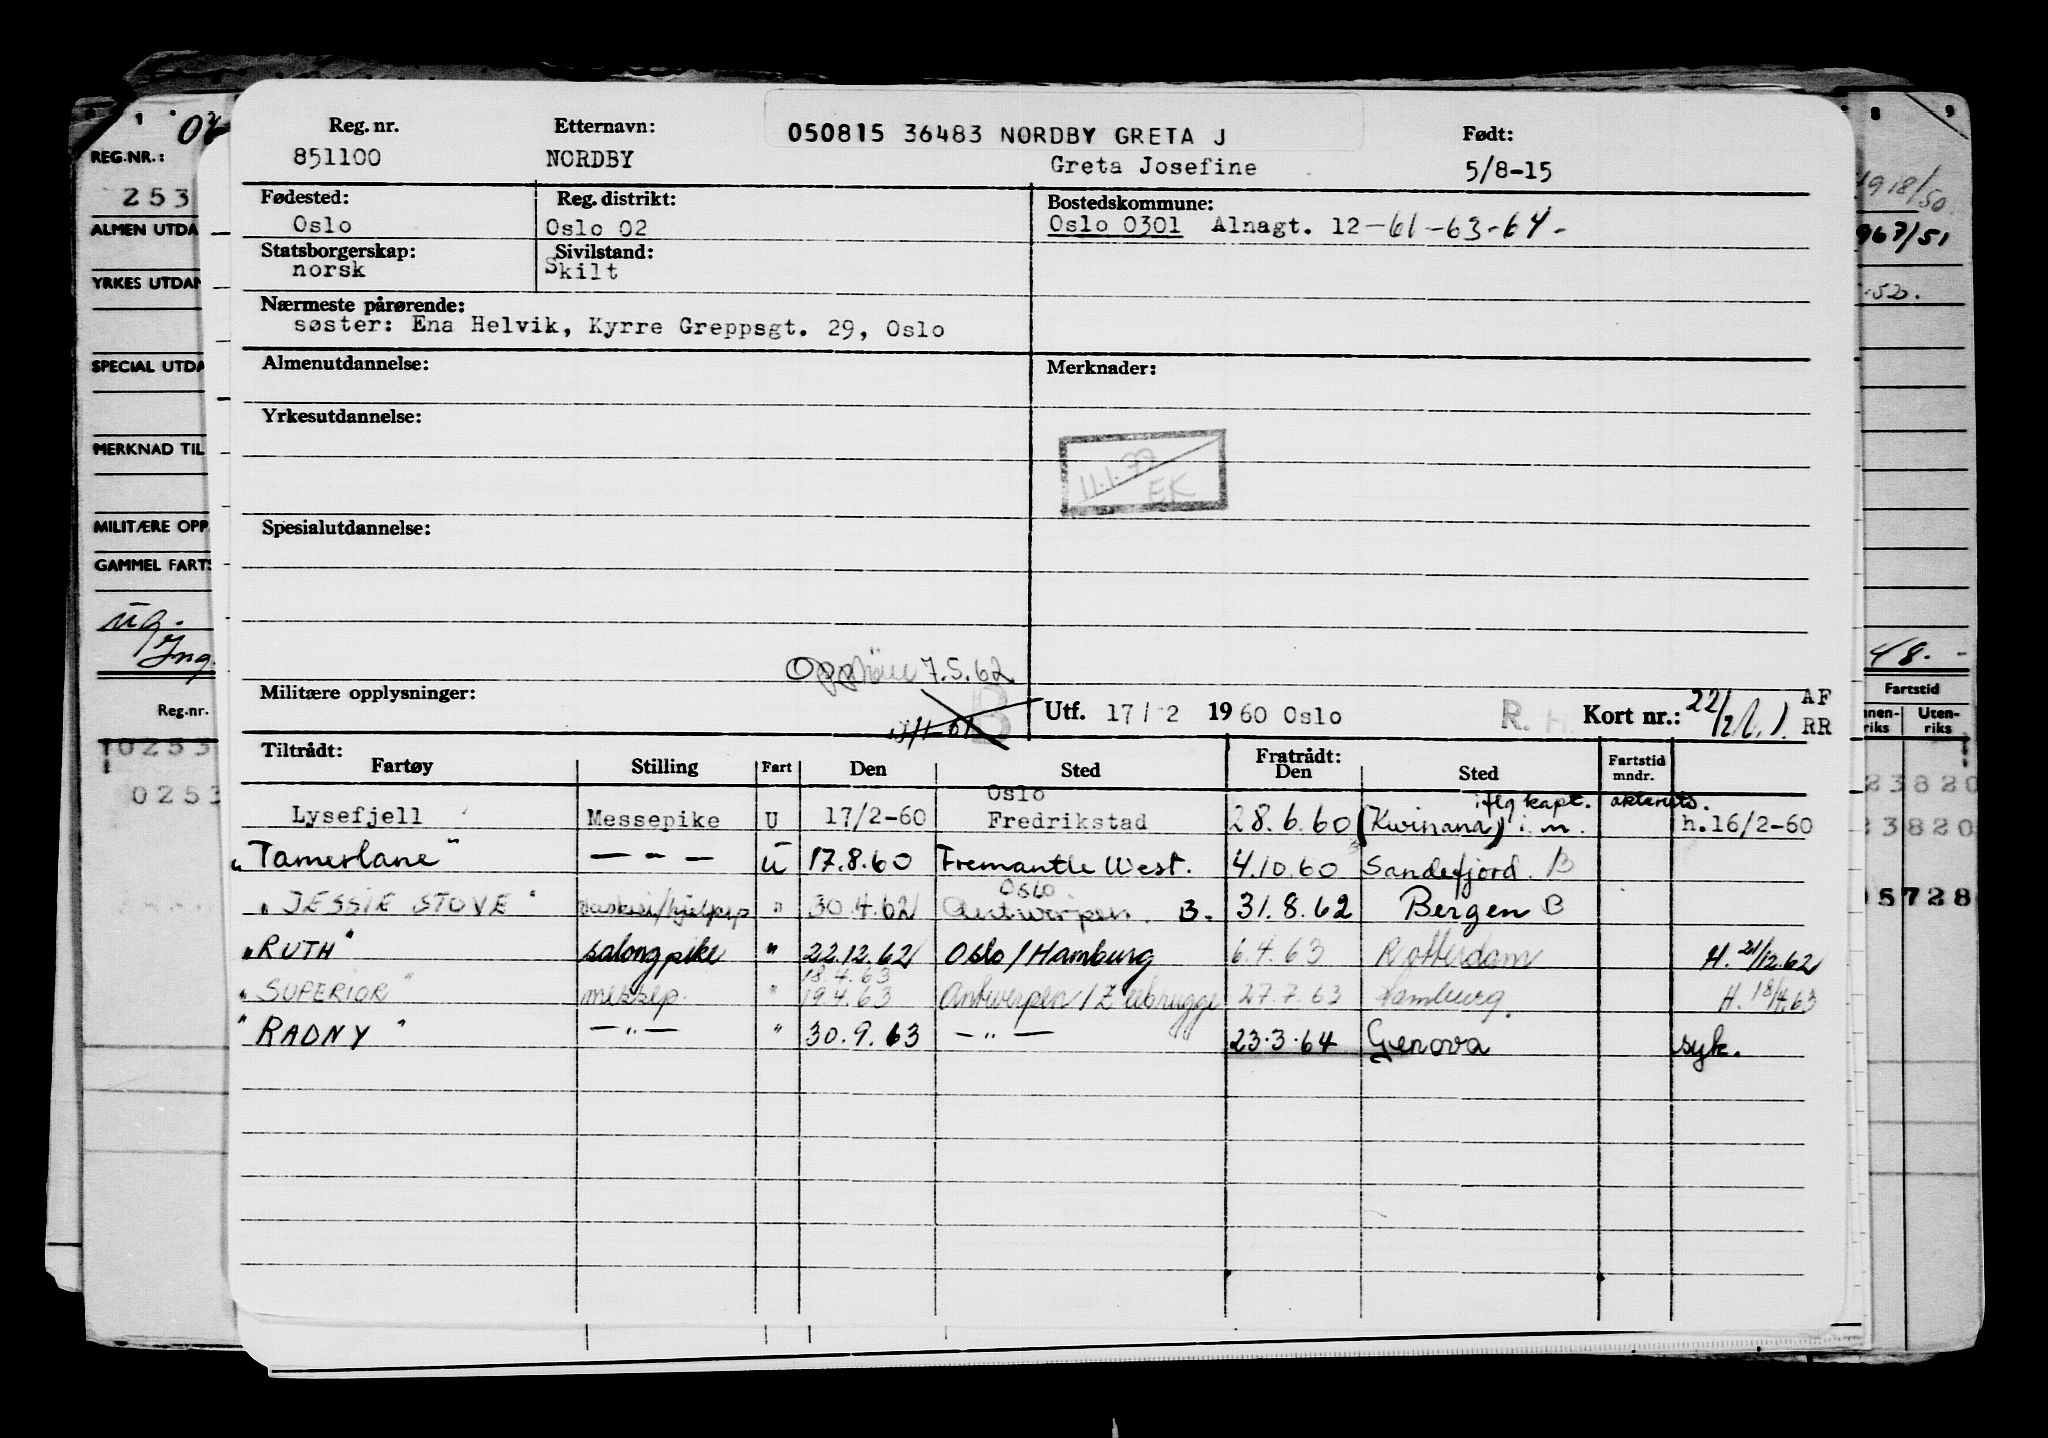 Reg. nr. Etternavn: 050815 36483 NORDBY GRETA J Født:
851100 NORDBY Greta Josefine 5/8-15
Fødested: Reg. distrikt: Bostedskommune:
Oslo Oslo 02 Oslo 0301 Alnagt. 12 -61-63-64-
Statsborgerskap: Sivilstand:
norsk Skilt
Nærmeste pårørende:
søster: Ena Helvik, Kyrre Greppsgt. 29, Oslo
Almenutdannelse: Merknader:
Yrkesutdannelse:
11.1.77
EK
Spesialutdannelse:
7.5.62
Militære opplysninger: B Utf. 17/2 1960 Oslo R. H. Kort nr.: AF
RR
Tiltrådt: Fratrådt:
Fartøy Stilling Fart Den Sted Den Sted Fartstid mndr.
Oslo iflg kapt.
Lysefjell Messepike U 17/2-60 Fredrikstad 28.6.60 (Kwinana) i.m. h.16/2-60
"Tamerlane" — " — U 17.8.60 Fremantle West. 4.10.60 Sandefjord B
Oslo
"JESSIE STOVE" " 30.4.62 Antwerpen B. 31.8.62 Bergen B
"RUTH" salongpike " 22.12.62 Oslo/Hamburg 6.4.63 Rotterdam H. 21/12.62
18.4.63
"SUPERIOR" messep. " 19.4.63 Antwerpen/Zeebrugge 27.7.63 Hamburg. H. 18/4.63
"RADNY" — " — " 30.9.63 — " — 23.3.64 Genova syk.
REG.NR.:
253
ALMEN UTDA
YRKES UTDAN
SPECIAL UTDA
MERKNAD TIL
MILITÆRE OPP
GAMMEL FARTS
Ing.
Reg.nr.
0253
0253
8 9
18/50
967/51
48. -
Fartstid
Innen-riks Uten-riks
23820
23820
05728